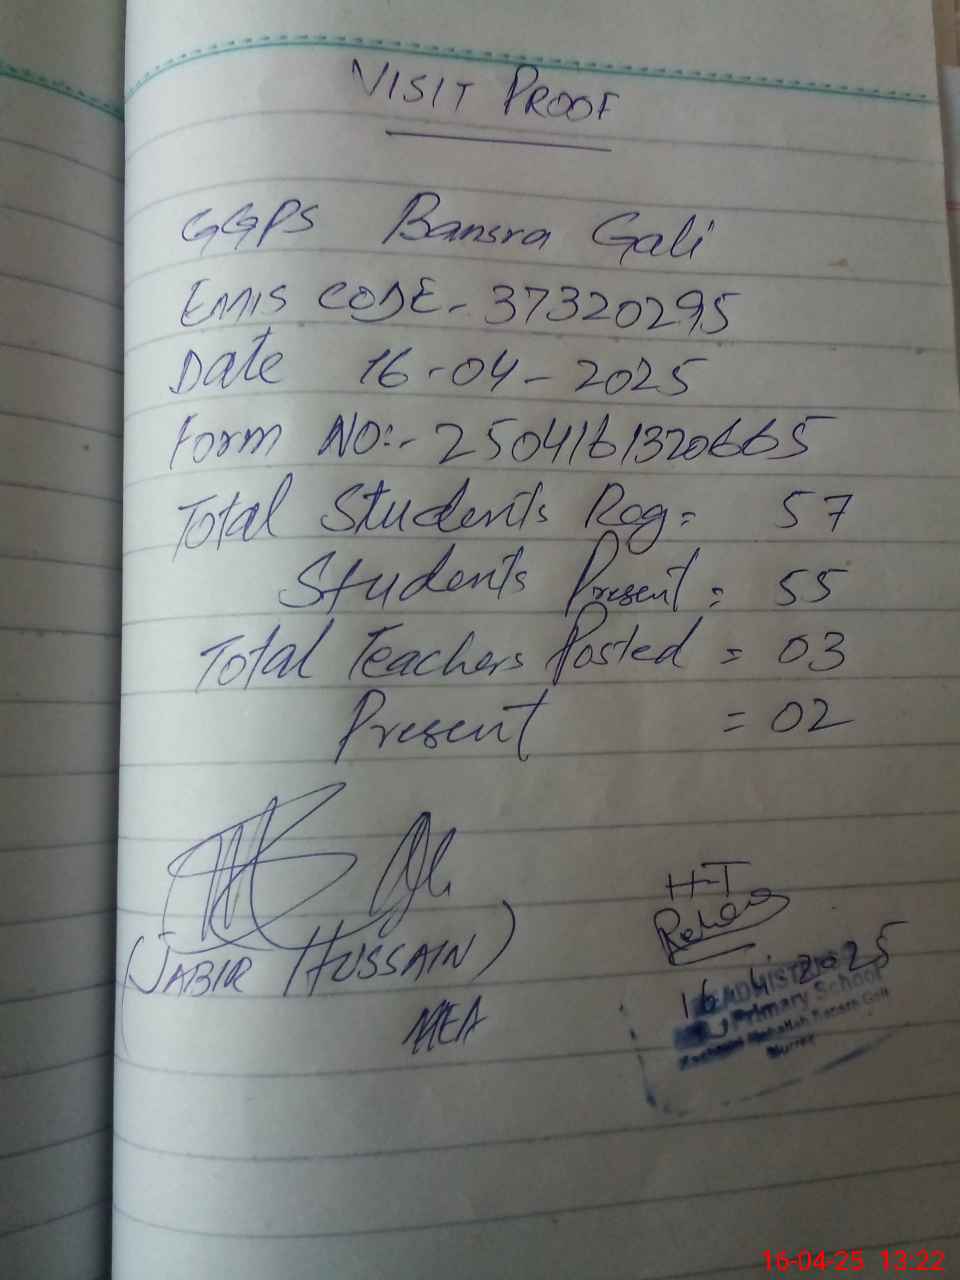 VISIT PROOF
GGPS Bansra Gali
EMIS CODE- 37320295
Date 16-04-2025
Form NO:- 2504161320665
Total Students Reg= 57
Students Present = 55
Total Teachers Posted = 03
Present = 02
(JABIR HUSSAIN)
MEA
H-T
16 4 2025
Primary School
Mohallah Bansra Gali
Murree
16-04-25 13:22